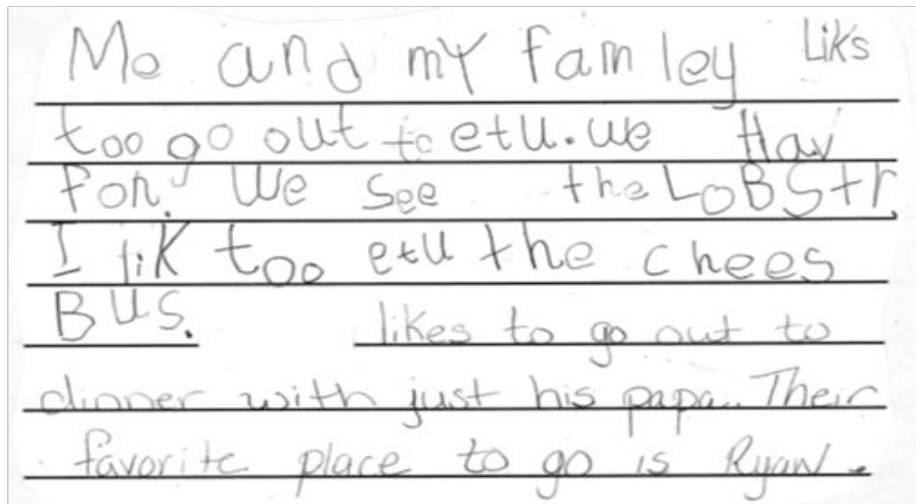 Me and my famley Liks
too go out to etu. we Hav
fon. We see the LOBStr.
I lik too etu the chees
BUS. likes to go out to
dinner with just his papa. Their
favorite place to go is Ryan.